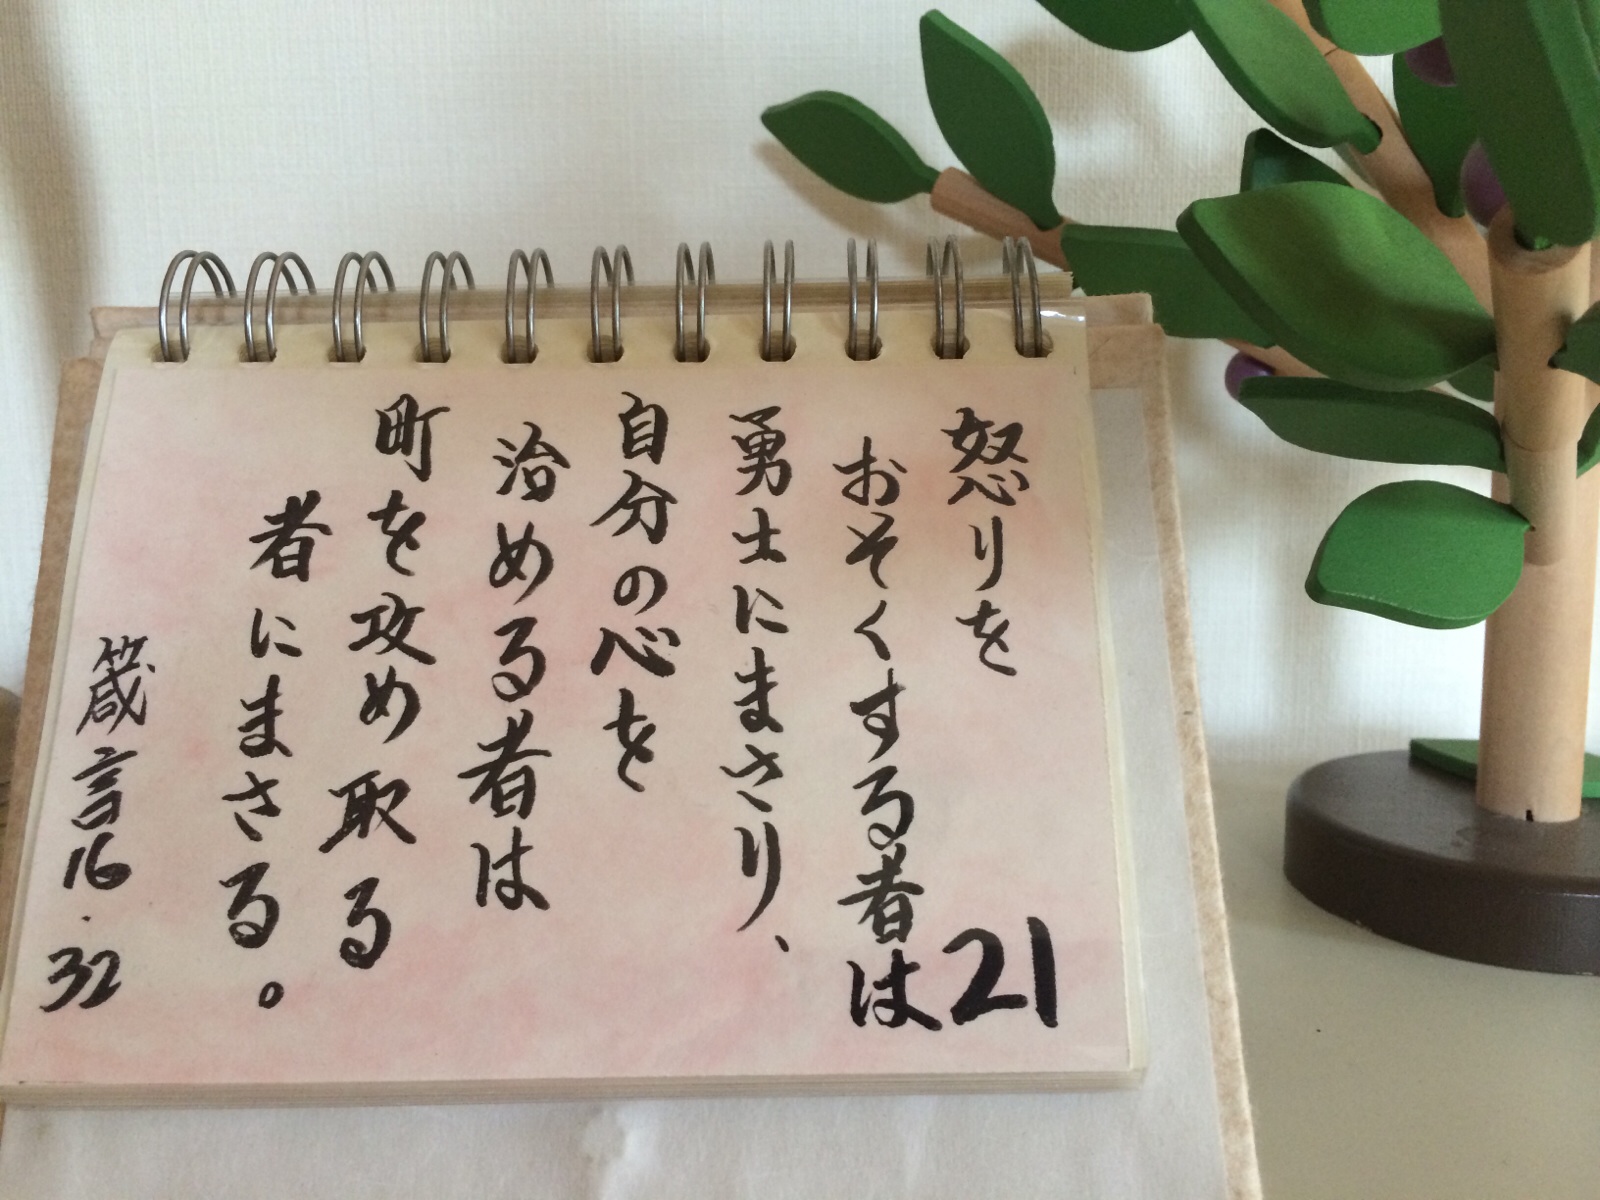 怒りを
おそくする者は
勇士にまさり、
自分の心を
治める者は
町を攻め取る
者にまさる。
箴言16.32
21